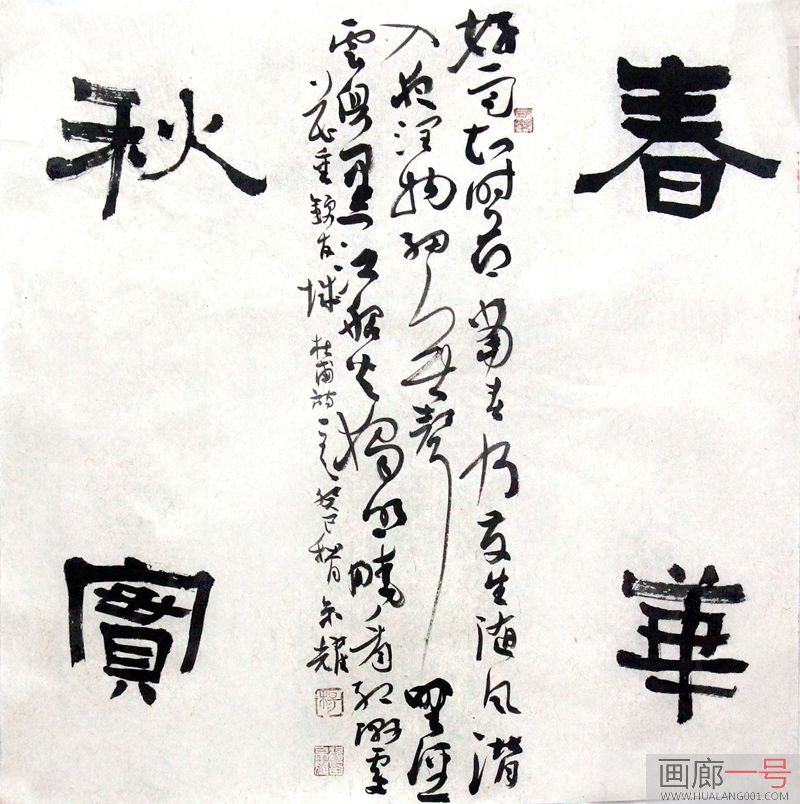 春華
好雨知時節當春乃發生隨風潛
入夜潤物細無聲野徑
雲俱黑江船火獨明曉看紅濕處
花重錦官城 杜甫詩 癸巳秋月 耀
楊
秋實
画廊一号
WWW.HUALANG001.COM